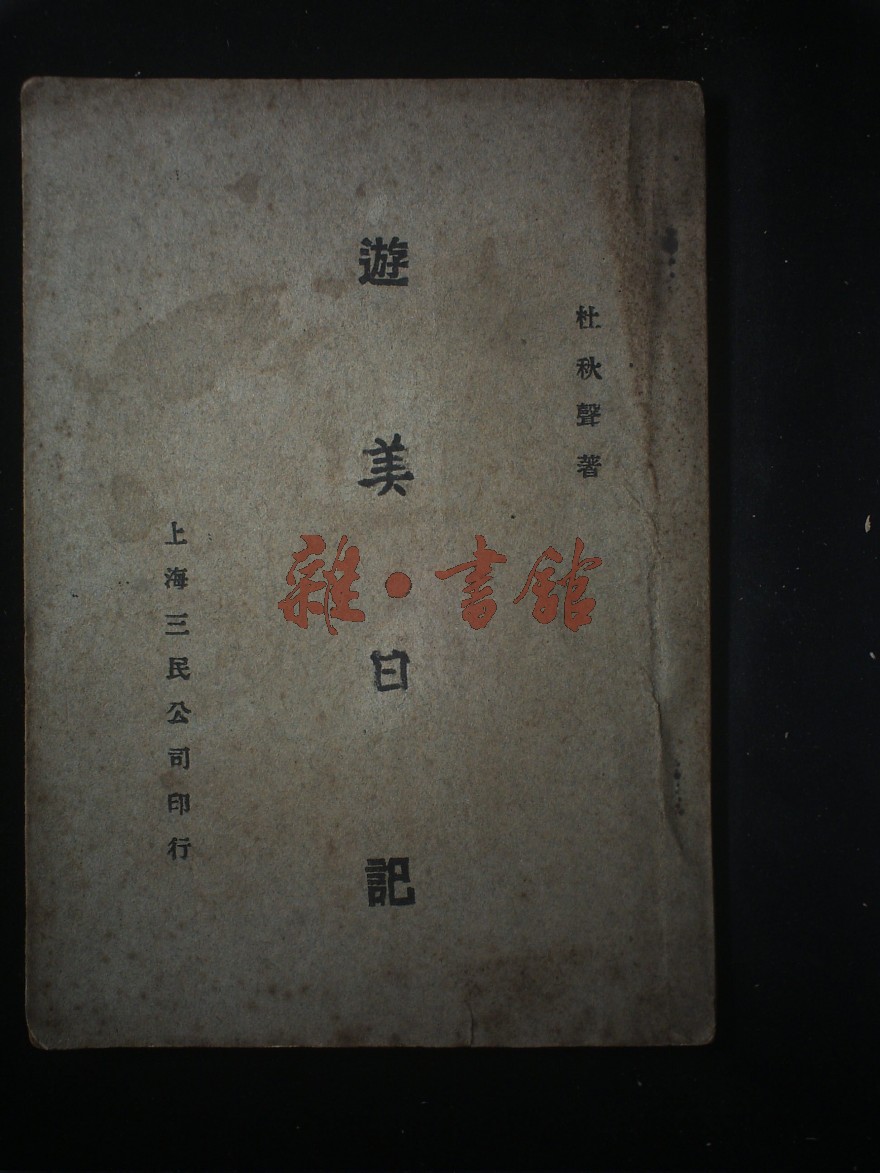 杜秋聲著
遊美日記
上海三民公司印行
雜·書館